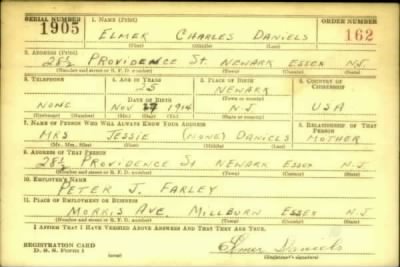 SERIAL NUMBER 1. NAME (Print) ORDER NUMBER
1905 ELMER CHARLES DANIELS 162
(First) (Middle) (Last)
2. ADDRESS (Print)
28½ PROVIDENCE ST. NEWARK ESSEX N.J.
(Number and street or R. F. D. number) (Town) (County) (State)
3. TELEPHONE 4. AGE IN YEARS 5. PLACE OF BIRTH 6. COUNTRY OF CITIZENSHIP
25 NEWARK
DATE OF BIRTH (Town or county)
NONE NOV 27 1914 N.J. USA
(Exchange) (Number) (Mo.) (Day) (Yr.) (State or country)
7. NAME OF PERSON WHO WILL ALWAYS KNOW YOUR ADDRESS 8. RELATIONSHIP OF THAT PERSON
MRS JESSIE (NONE) DANIELS MOTHER
(Mr., Mrs., Miss) (First) (Middle) (Last)
9. ADDRESS OF THAT PERSON
28½ PROVIDENCE ST NEWARK ESSEX N.J.
(Number and street or R. F. D. number) (Town) (County) (State)
10. EMPLOYER'S NAME
PETER J. FARLEY
11. PLACE OF EMPLOYMENT OR BUSINESS
MORRIS AVE. MILLBURN ESSEX N.J.
(Number and street or R. F. D. number) (Town) (County) (State)
I AFFIRM THAT I HAVE VERIFIED ABOVE ANSWERS AND THAT THEY ARE TRUE.
REGISTRATION CARD
D. S. S. Form 1 Elmer Daniels
(over) (Registrant's signature)